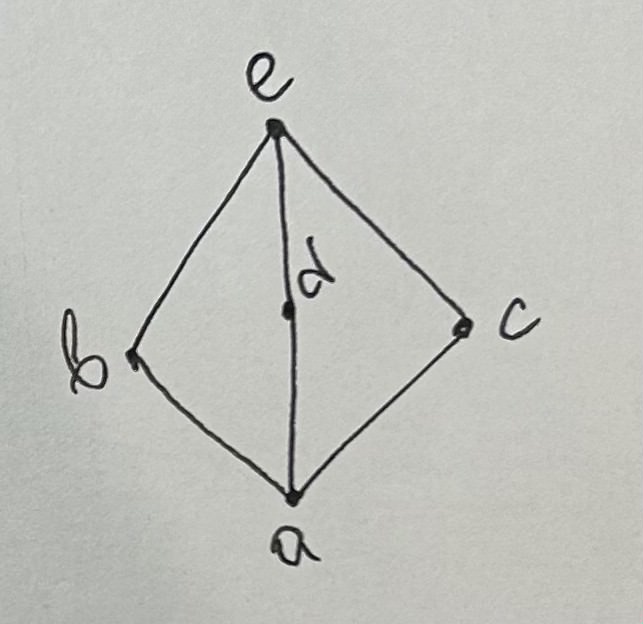 e
d
b
c
a